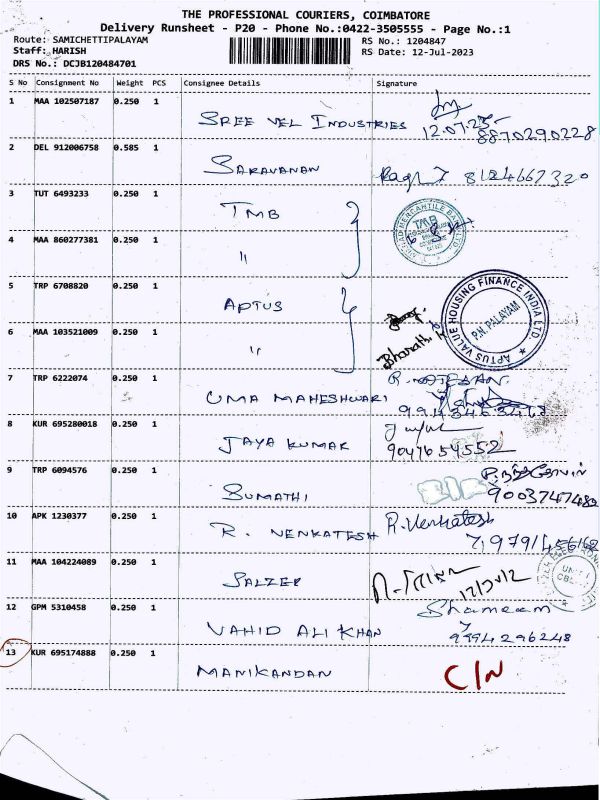 THE PROFESSIONAL COURIERS, COIMBATORE
Delivery Runsheet - P20 - Phone No.:0422-3505555 - Page No.:1
Route: SAMICHETTIPALAYAM RS No.: 1204847
Staff: HARISH RS Date: 12-Jul-2023
DRS No.: DCJB120484701
S No Consignment No Weight PCS Consignee Details Signature
1 MAA 102507187 0.250 1 SREE VEL INDUSTRIES
8870290228
2 DEL 912006758 0.585 1 SARAVANAN 8124667320
3 TUT 6493233 0.250 1 TMB
TMB
4 MAA 860277381 0.250 1 "
5 TRP 6708820 0.250 1 APTUS
APTUS VALUE HOUSING FINANCE INDIA LTD.
P.N. PALAYAM
6 MAA 103521009 0.250 1 "
Bharath
7 TRP 6222074 0.250 1 UMA MAHESHWARI
8 KUR 695280018 0.250 1 JAYA KUMAR
9047654552
9 TRP 6094576 0.250 1 SUMATHI
9003747483
10 APK 1230377 0.250 1 R. VENKATESH R.Venkatesh
11 MAA 104224089 0.250 1 SALZER
12 GPM 5310458 0.250 1 VAHID ALI KHAN
9994296248
13 KUR 695174888 0.250 1 MANIKANDAN C/N